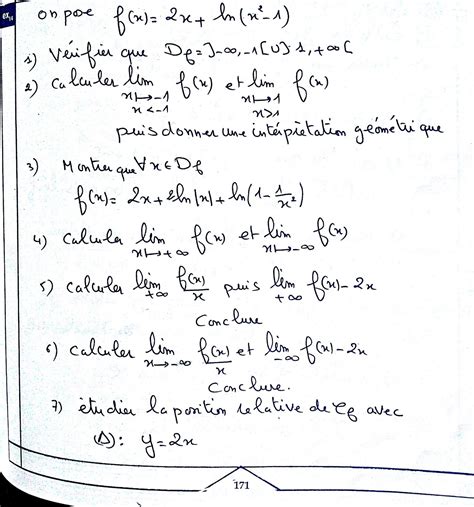 on pose f(x) = 2x + ln(x²-1)
1) Vérifier que Df = ]-∞,-1[ U ]1,+∞[
2) Calculer lim f(x) et lim f(x)
x↦-1 x↦1
x<-1 x>1
puis donner une intérprètation géométrique
3) Montrer que ∀x∈Df
f(x) = 2x + 2ln|x| + ln(1 - 1/x²)
4) calculer lim f(x) et lim f(x)
x↦+∞ x↦-∞
5) calculer lim f(x)/x puis lim f(x) - 2x
+∞ +∞
Conclure
6) calculer lim f(x)/x et lim f(x) - 2x
x↦-∞ -∞
Conclure.
7) étudier la position relative de Cf avec
(Δ): y = 2x
171